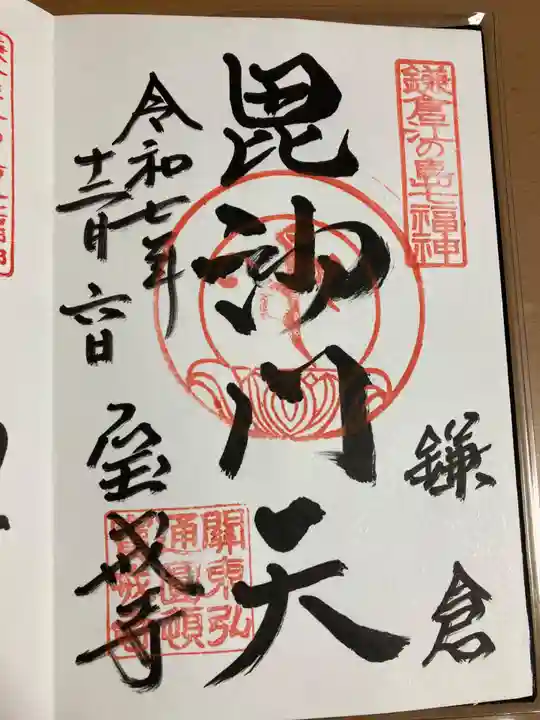 鎌倉江の島七福神
鎌倉
毘沙門天
令和七年
十二月六日
宝戒寺
關東弘
通圓頓
寶戒寺